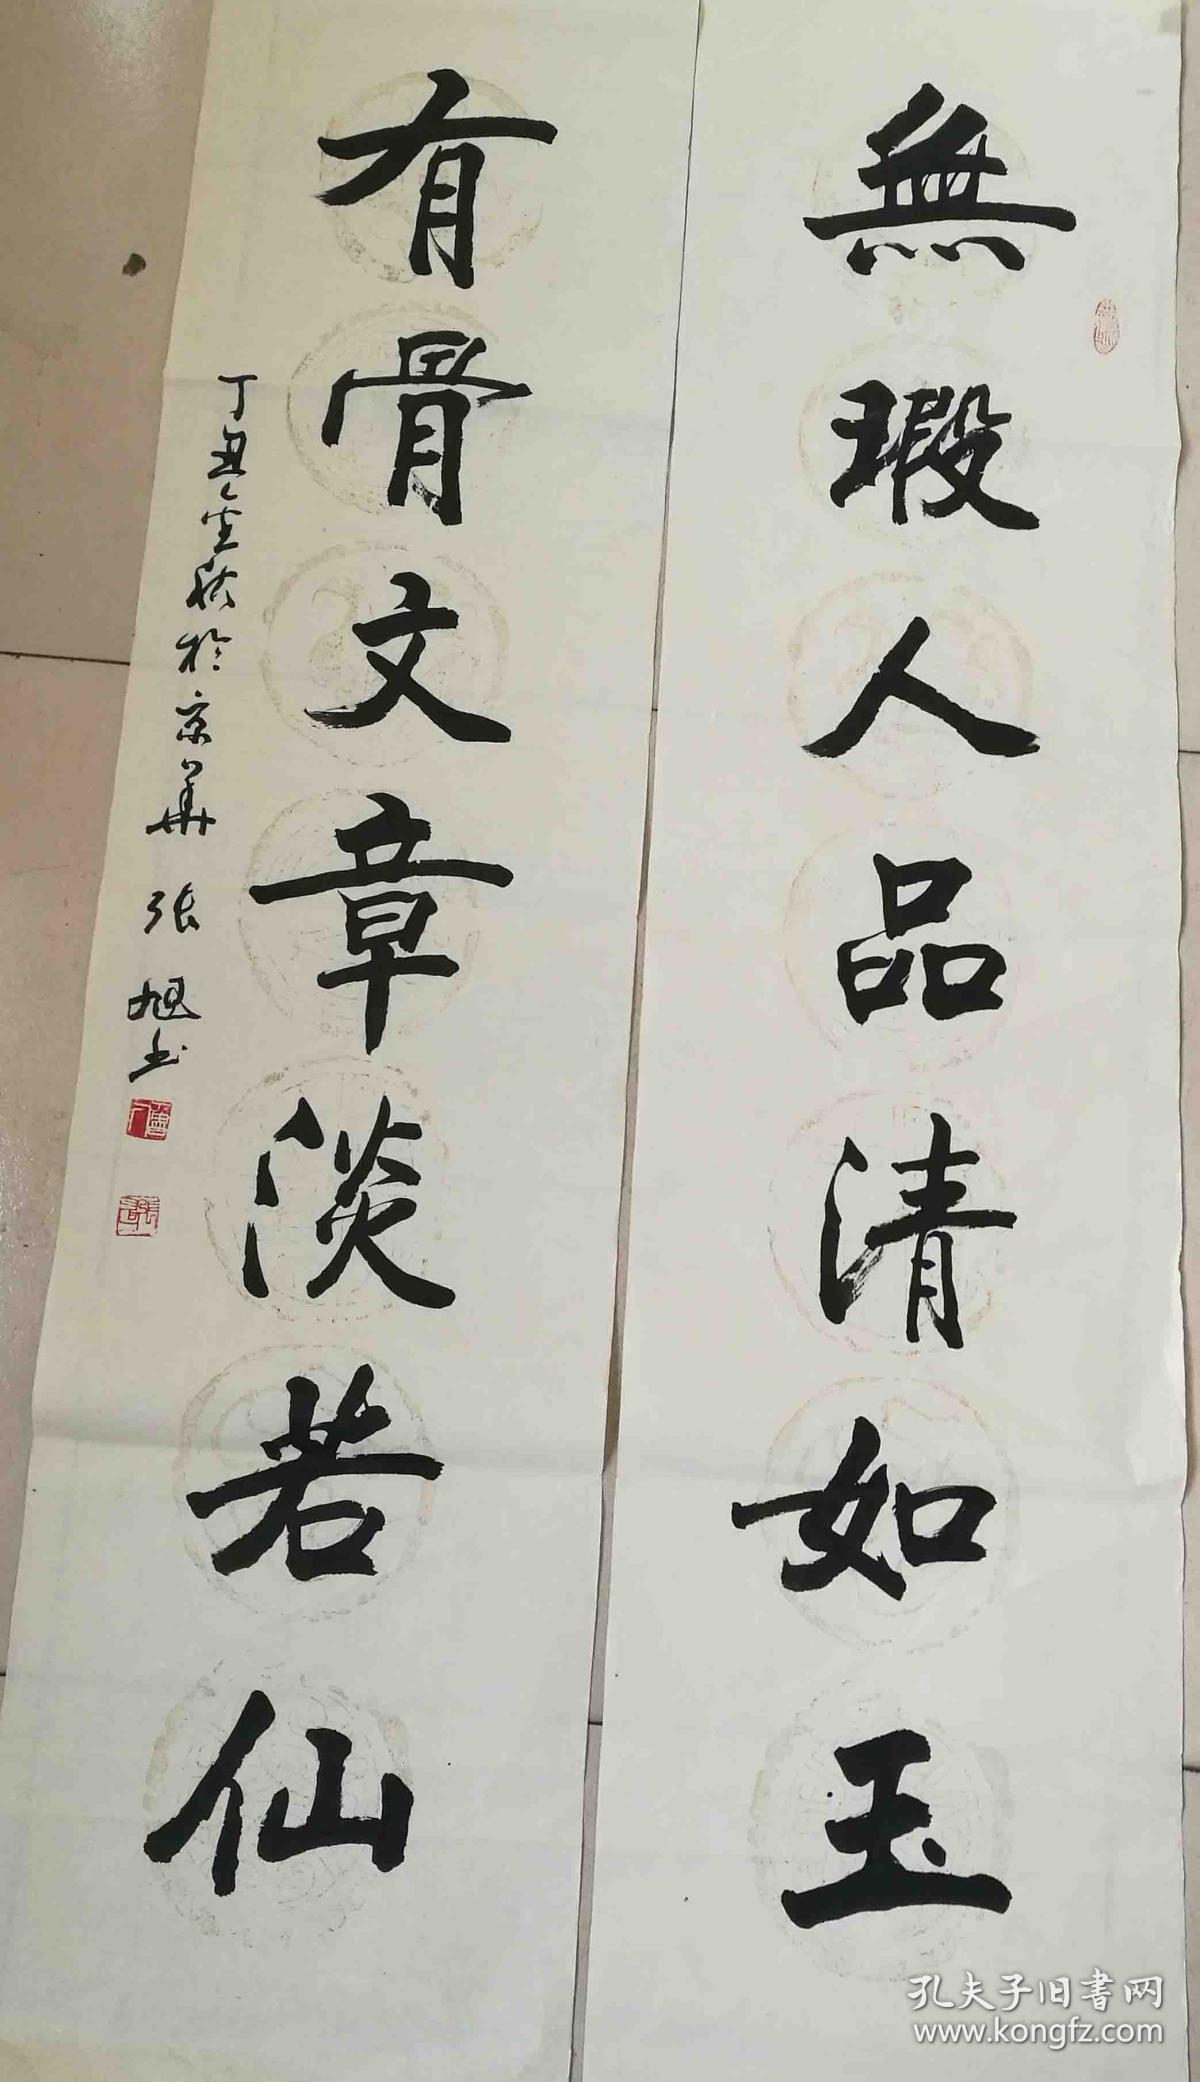 無瑕人品清如玉
有骨文章淡若仙
丁丑金秋於京華 張旭书
孔夫子旧书网
www.kongfz.com